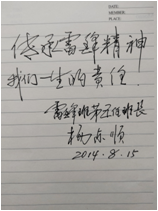 DATE:
PLACE:
传承雷锋精神
我们一生的责任!
雷锋班第五任班长
杨东顺
2014.8.15